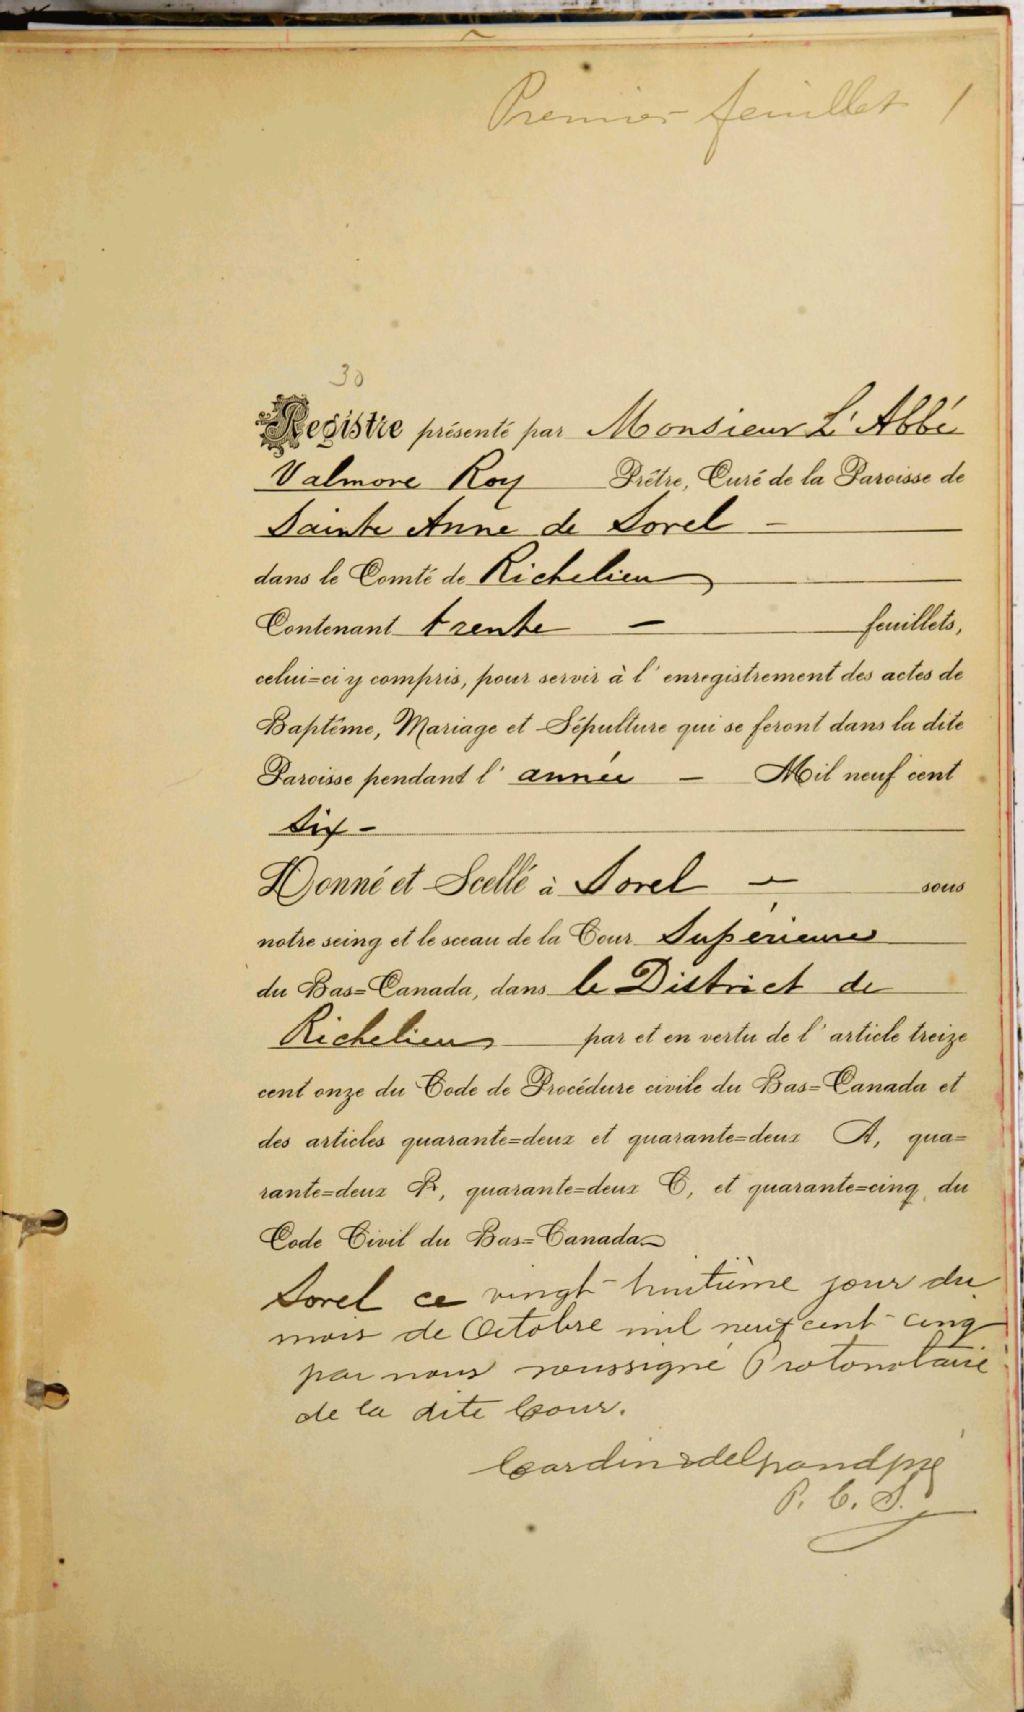 Premier feuillet 1
30
Registre présenté par Monsieur L'Abbé
Valmore Roy Prêtre, Curé de la Paroisse de
Sainte Anne de Sorel -
dans le Comté de Richelieu
Contenant trente - feuillets,
celui=ci y compris, pour servir à l'enregistrement des actes de
Baptême, Mariage et Sépulture qui se feront dans la dite
Paroisse pendant l'année - Mil neuf cent
Six -
Donné et Scellé à Sorel - sous
notre seing et le sceau de la Cour Supérieure
du Bas=Canada, dans le District de
Richelieu par et en vertu de l'article treize
cent onze du Code de Procédure civile du Bas=Canada et
des articles quarante=deux et quarante=deux A, qua=
rante=deux B, quarante=deux C, et quarante=cinq du
Code Civil du Bas=Canada
Sorel ce vingt huitième jour du
mois de Octobre mil neuf cent cinq
par nous soussigné Protonotaire
de la dite Cour.
Cardin & delGrandpré
P. C. S.